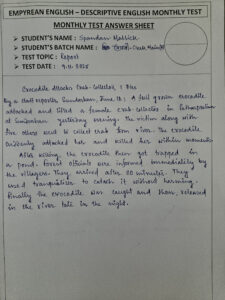 EMPYREAN ENGLISH – DESCRIPTIVE ENGLISH MONTHLY TEST
MONTHLY TEST ANSWER SHEET
➤ STUDENT'S NAME : Spandan Mallick
➤ STUDENT'S BATCH NAME : Crash Main
➤ TEST TOPIC : Report
➤ TEST DATE :
Crocodile Attacks Crab-Collector, 1 Dies
By a staff reporter, Sundarban, June 12: A full grown crocodile
attacked and killed a female crab collector in
at Sundarban yesterday evening. The victim along with
five others used to collect crab from river. The crocodile
suddenly attacked her and killed her within moments.
After killing, the crocodile then got trapped in
a pond. Forest officials were informed immediately by
the villagers. They arrived after 30 minutes. They
used tranquilizer to catach it without harming.
Finally the crocodile was caught and then, released
in the river late in the night.